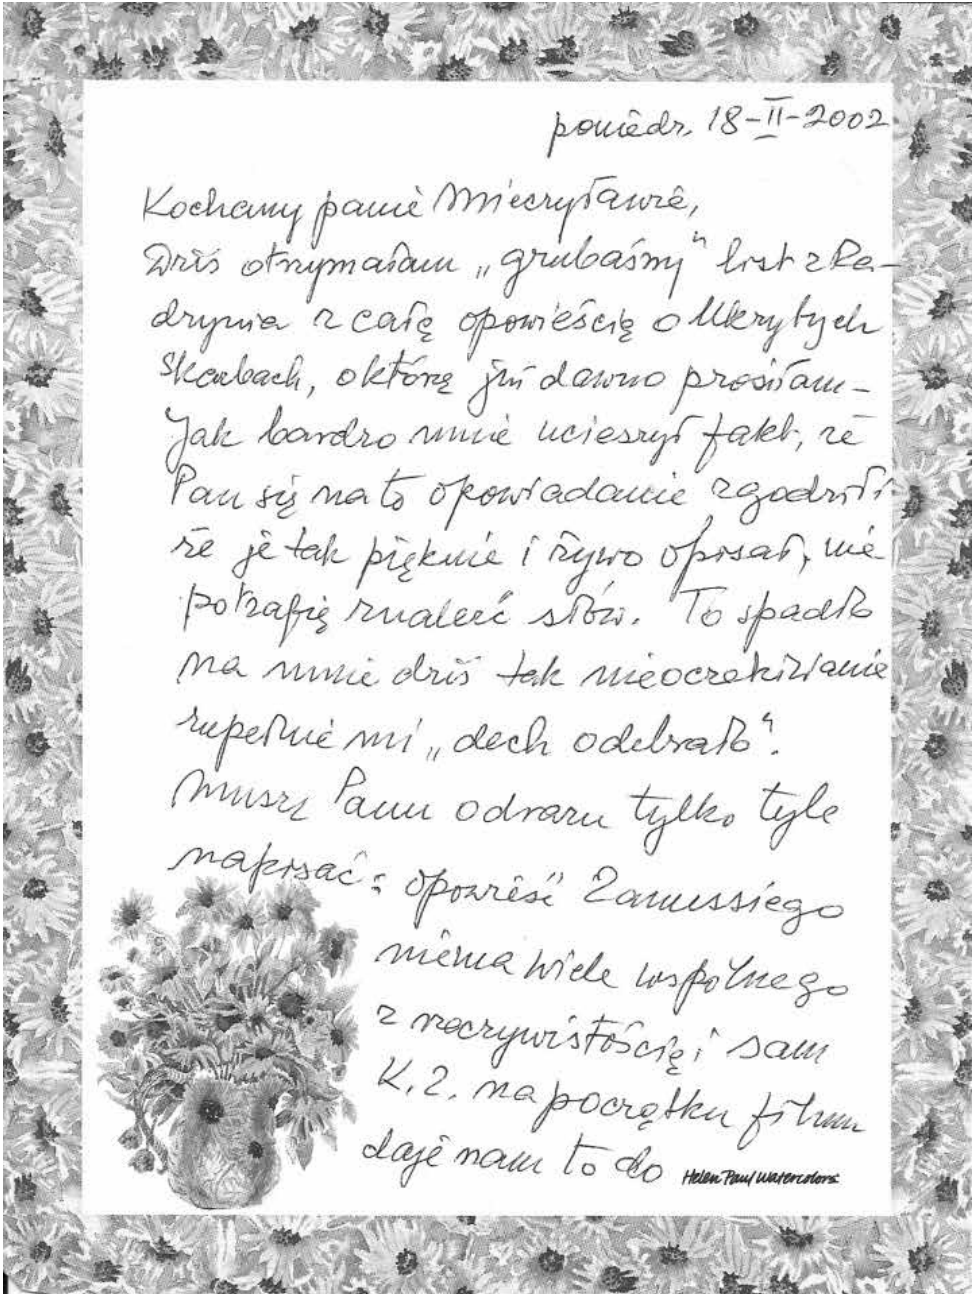 poniedz. 18-II-2002
Kochany panie Mieczysławie,
Dziś otrzymałam „grubaśny" list z Ra-
dzynia z całą opowieścią o Ukrytych
Skarbach, o którą już dawno prosiłam -
Jak bardzo mnie ucieszył fakt, że
Pan się na to opowiadanie zgodził i
że je tak pięknie i żywo opisał, nie
potrafię znaleźć słów. To spadło
na mnie dziś tak nieoczekiwanie
zupełnie mi „dech odebrało".
Muszę Panu odrazu tylko tyle
napisać: opowieść Zanussiego
niema wiele wspólnego
z rzeczywistością i sam
K.Z. na początku filmu
daje nam to do
Helen Paul Watercolors